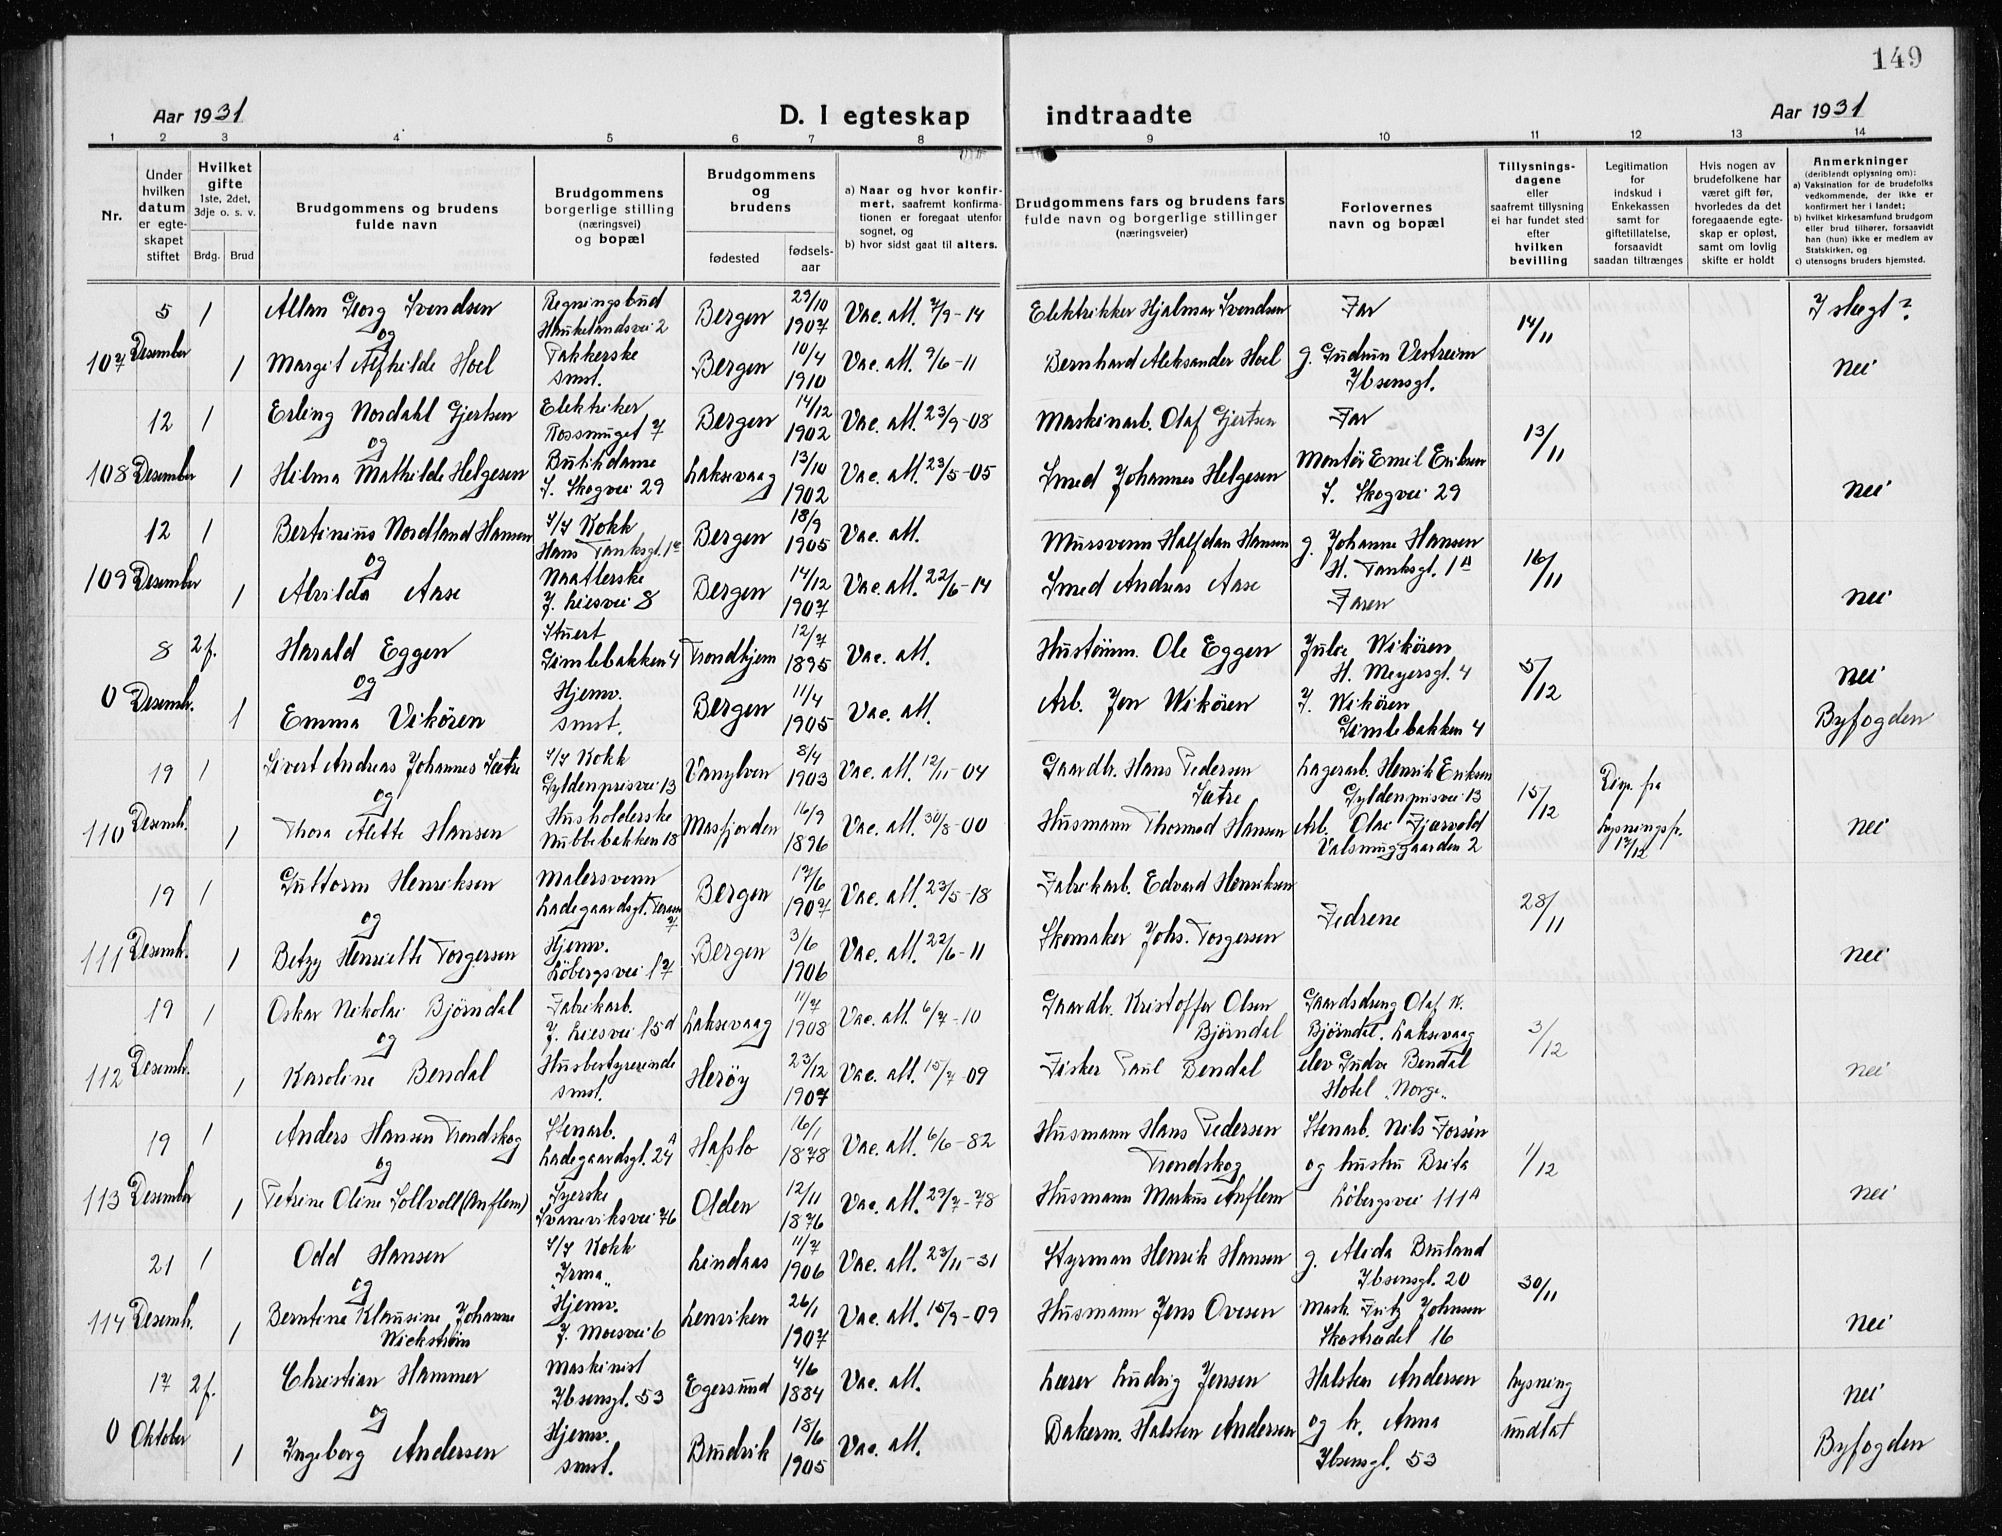 149
Aar 1931
D. I egteskap indtraadte
Aar 1931
1 2 3 4 5 6 7 8 9 10 11 12 13 14
Nr.
Under hvilken datum er egteskapet stiftet
Hvilket gifte 1ste, 2det, 3dje o. s. v.
Brdg. Brud
Brudgommens og brudens fulde navn
Brudgommens borgerlige stilling (næringsvei) og bopæl
Brudgommens og brudens
fødested
fødselsaar
a) Naar og hvor konfirmert, saafremt konfirmationen er foregaat utenfor sognet, og
b) hvor sidst gaat til alters.
Brudgommens fars og brudens fars fulde navn og borgerlige stillinger (næringsveier)
Forlovernes navn og bopæl
Tillysningsdagene eller saafremt tillysning ei har fundet sted efter hvilken bevilling
Legitimation for indskud i Enkekassen samt for giftetillatelse, forsaavidt saadan tiltrænges
Hvis nogen av brudefolkene har været gift før, hvorledes da det foregaaende egteskap er opløst, samt om lovlig skifte er holdt
Anmerkninger (deriblandt oplysning om):
a) Vaksination for de brudefolks vedkommende, der ikke er konfirmert her i landet;
b) hvilket kirkesamfund brudgom eller brud tilhører, forsaavidt han (hun) ikke er medlem av Statskirken, og
c) utensogns bruders hjemsted.
107 5 Desember 1 Allan Georg Svendsen Regningsbud Haukelandsvei 2 Bergen 29/10 1907 Vac. att. 7/9-14 Elektrikker Hjalmar Svendsen Far 14/11 I slegt?
og
1 Margit Alfhilde Hoel Takkerske smst. Bergen 10/4 1910 Vac. att. 9/6-11 Bernhard Aleksander Hoel g. Gudrun Vestreim Ibsensgt. nei
108 12 Desember 1 Erling Nordahl Gjertsen Elektriker Rossmuget 7 Bergen 14/12 1902 Vac. att. 23/9-08 Maskinarb. Olaf Gjertsen Far 13/11
og
1 Hilma Mathilde Helgesen Butikdame S. Skogvei 29 Laksevaag 13/10 1902 Vac. att. 23/5-05 Smed Johannes Helgesen Montör Emil Eriksen S. Skogvei 29 nei
109 12 Desember 1 Bertinius Nordland Hansen S/S Kokk Hans Tanksgt. Bergen 18/9 1905 Vac. att. Mursvenn Halfdan Hansen g. Johanne Hansen H. Tanksgt. 1A 16/11
og
1 Alvilda Aase Naatlerske J. Liesvei 8 Bergen 14/12 1907 Vac. att. 22/6-14 Smed Andreas Aase Faren nei
0 8 Desemb. 2f. Harald Eggen Stuert Gimlebakken 4 Trondhjem 12/7 1895 Vac. att. Hustömm. Ole Eggen Wikören H. Meyersgt. 4 5/12 nei
og
1 Emma Vikören Hjemv. smst. Bergen 11/4 1905 Vac. att. Arb. Jen Wikören J. Wikören Gimlebakken 4 Byfogden
110 19 Desemb. 1 Sivert Andreas Johannes Sætre S/S Kokk Gyldenprisvei 13 Vanylven 8/4 1903 Vac. att. 12/11-04 Gaardbr. Hans Pedersen Sætre Lagerarb. Henrik Eriksen Gyldenprisvei 13 15/12 Disp. fra lysningsfr. 17/12
og
1 Thora Alette Hansen Husholderske Nubbebakken 18 Masfjorden 16/9 1896 Vac. att. 30/8-00 Husmann Thormod Hansen Arb. Olai Fjærvold Valsmuggaarden 2 nei
111 19 Desemb. 1 Guttorm Henriksen Malersvenn Ladegaardsgt. Terasse 7 Bergen 17/6 1907 Vac. att. 23/5-18 Fabrikarb. Edvard Henriksen Fedrene 28/11
og
1 Betzy Henriette Torgersen Hjemv. Löbergsvei 17 Bergen 3/6 1906 Vac. att. 22/6-11 Skomaker Johs. Torgersen nei
112 19 Desemb. 1 Oskar Nikolai Björndal Fabrikarb. J. Liesvei 15d Laksevaag 11/7 1908 Vac. att. 6/7-10 Gaardbr. Kristoffer Olsen Björndal Gaardsdreng Olaf K. Bjørndal, Laksevaag 3/12
og
1 Karoline Bendal Husbestyrerinde smst. Herøy 23/12 1907 Vac. att. 15/7-09 Fisker Paul Bendal elev Gudve Bendal Hotel „Norge" nei
113 19 Desember 1 Anders Hansen Trondskog Stenarb. Ladegaardsgt. 24A Hafslo 16/1 1878 Vac. att. 6/6-82 Husmann Hans Pedersen Trondskog Stenarb. Nils Forsin og hustru Brita Löbergsvei 111A 1/12
og
1 Petrine Oline Sollvoll (Anflem) Syerske Svaneviksvei 76 Olden 12/11 1876 Vac. att. 29/7-78 Husmann Markus Anflem nei
114 21 Desemb. 1 Odd Hansen S/S Kokk „Irma" Lindaas 11/7 1906 Vac. att. 23/11-31 Styrman Henrik Hansen g. Aleda Bruland Ibsensgt. 20 30/11
og
1 Berntine Klausine Johanne Wickström Hjemv. J. Moesvei 6 Lenviken 26/1 1907 Vac. att. 15/9-09 Husmann Jens Ovesen Mask. Fritz Johnsen Skostrædet 16 nei
0 17 Oktober 2f. Christian Hammer Maskinist Ibsensgt. 53 Egersund 4/6 1884 Vac. att. Lærer Ludvig Jensen Halsten Andersen og h. Anna Ibsensgt. 53 Lysning undlat nei
og
1 Ingeborg Andersen Hjemv. smst. Bmdrik 18/6 1905 Vac. att. Bakerm. Halsten Andersen Byfogden